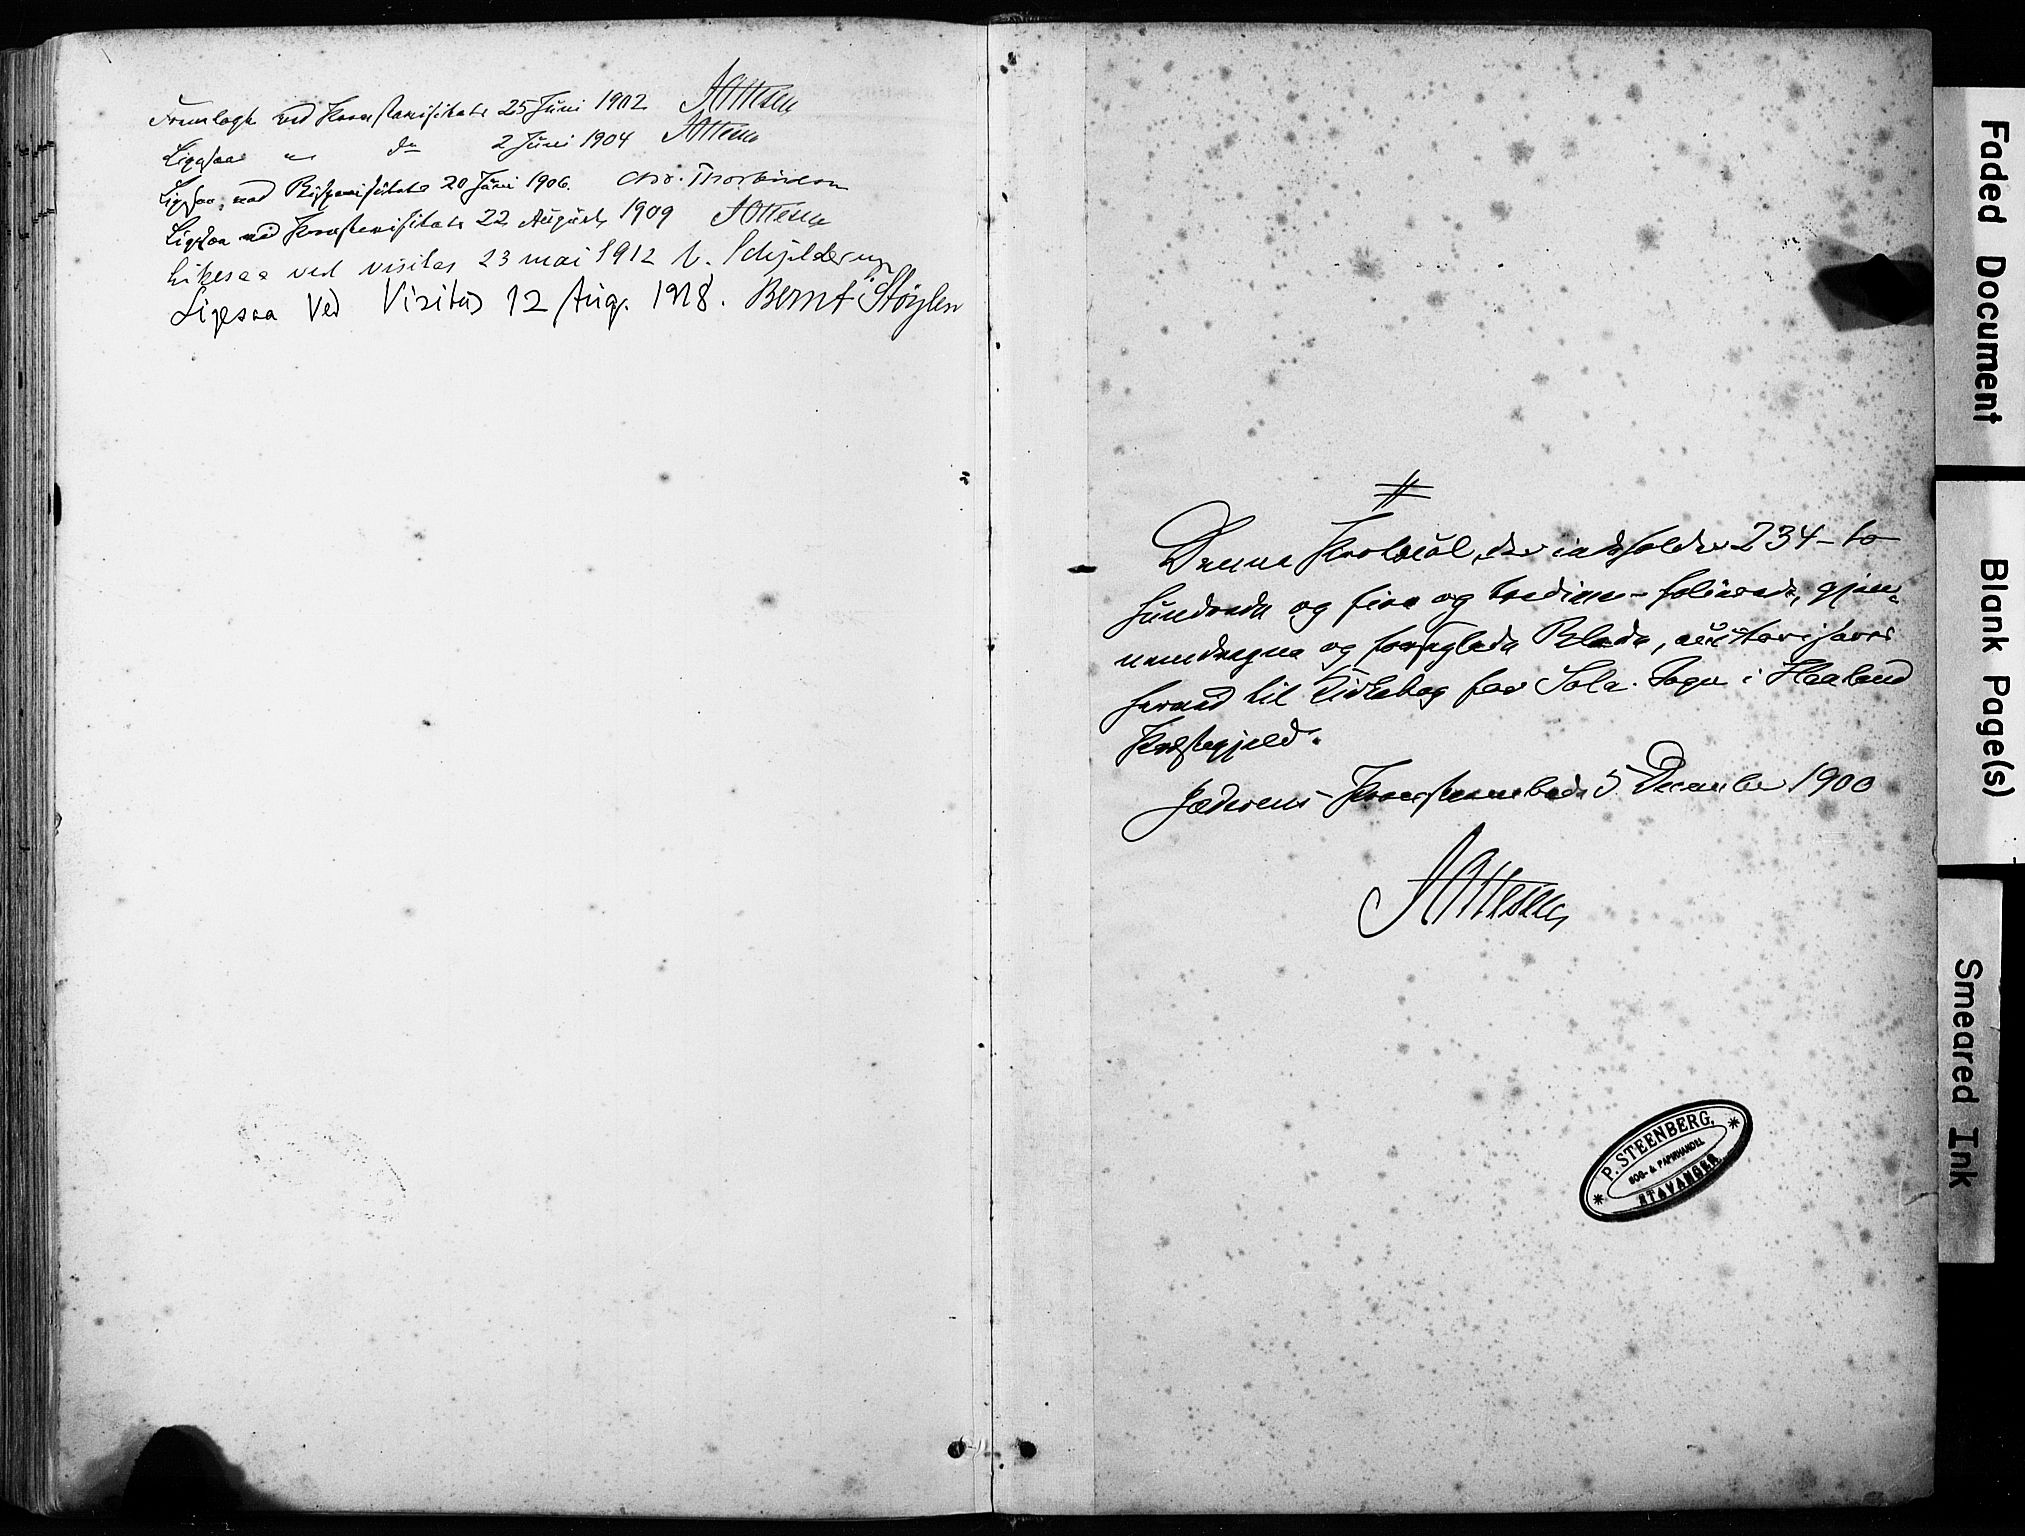 Fremlagt ved Provstevisitats 25 Juni 1902 AOttesen
Ligesaa " do 2 Juni 1904 AOttesen
Ligesaa ved Bispevisitats 20 Juni 1906. Chr. Thorbiørnsen
Ligesaa ved Provstevisitats 22 August 1909 AOttesen
Likesaa ved visitas 23 mai 1912 Schjelderup
Ligesaa ved Visitas 12 Aug. 1918. Bernt Støylen
Denne Protocol, der indeholder 234 - to
hundrede og fire og tredive - folierede, gjen-
nemdragne og forseglede Blade, autoriseres
herved til Kirkebog for Sola Sogn i Haaland
Præstegjeld.
Jæderens Provsteembede 5 December 1900
AOttesen
P. STEENBERG.
BOG- & PAPIRHANDEL
STAVANGER
Faded Document
Blank Page(s)
Smeared Ink